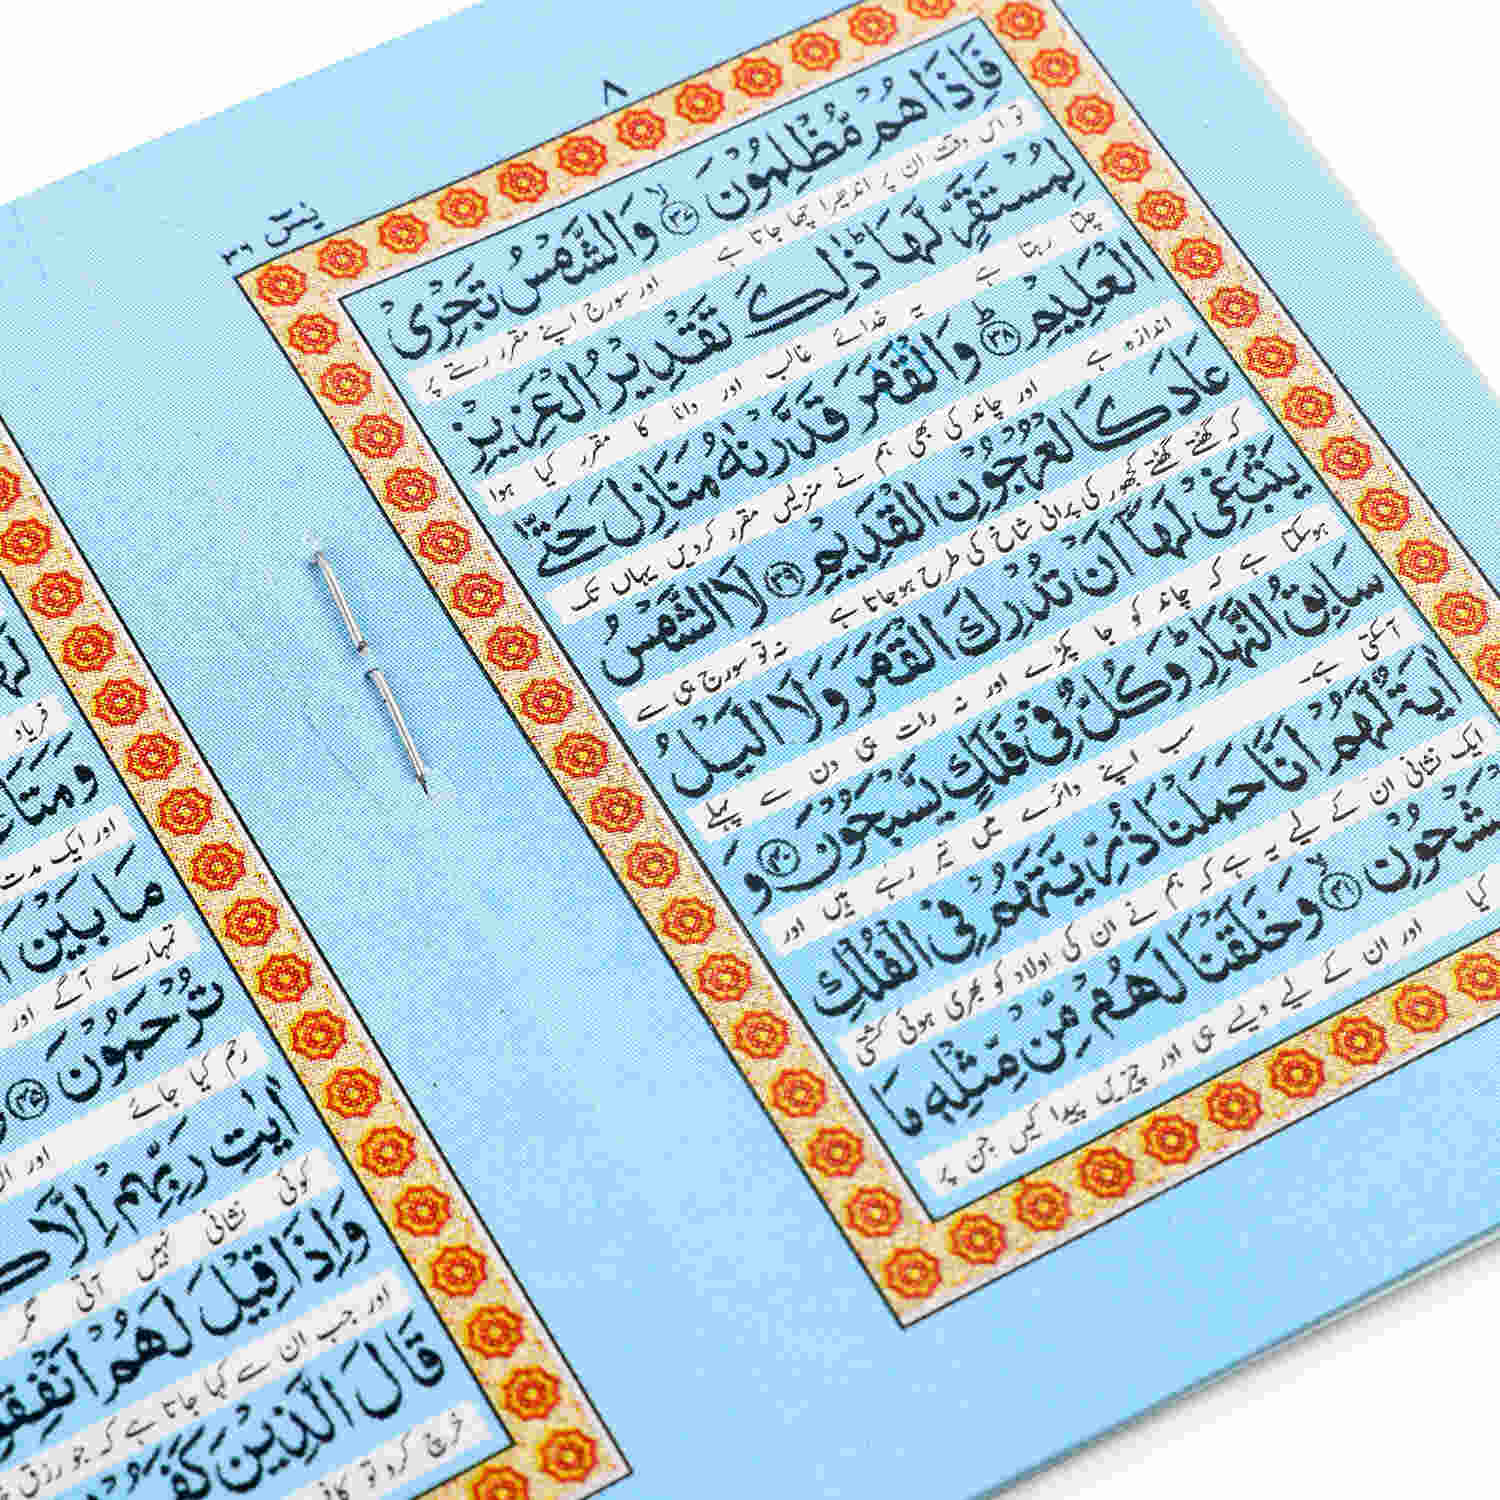 ٨
یٰسٓ ٣٦
فَاِذَا هُمْ مُّظْلِمُوْنَ ﴿٣٧﴾ۙ وَالشَّمْسُ تَجْرِیْ
تو اس وقت ان پر اندھیرا چھا جاتا ہے اور سورج اپنے مقرر رستے پر
لِمُسْتَقَرٍّ لَّهَا ؕ ذٰلِكَ تَقْدِیْرُ الْعَزِیْزِ
چلتا رہتا ہے یہ خدائے غالب اور دانا کا مقرر کیا ہوا
الْعَلِیْمِ ﴿٣٨﴾ؕ وَالْقَمَرَ قَدَّرْنٰهُ مَنَازِلَ حَتّٰی
اندازہ ہے اور چاند کی بھی ہم نے منزلیں مقرر کردیں یہاں تک
عَادَ كَالْعُرْجُوْنِ الْقَدِیْمِ ﴿٣٩﴾ لَا الشَّمْسُ
کہ گھٹتے گھٹتے کھجور کی پرانی شاخ کی طرح ہو جاتا ہے نہ تو سورج ہی سے
یَنْۢبَغِیْ لَهَاۤ اَنْ تُدْرِكَ الْقَمَرَ وَلَا الَّیْلُ
ہوسکتا ہے کہ چاند کو جا پکڑے اور نہ رات ہی دن سے پہلے
سَابِقُ النَّهَارِ ؕ وَكُلٌّ فِیْ فَلَكٍ یَّسْبَحُوْنَ ﴿٤٠﴾ وَ
آسکتی ہے۔ سب اپنے دائرے میں تیر رہے ہیں اور
اٰیَةٌ لَّهُمْ اَنَّا حَمَلْنَا ذُرِّیَّتَهُمْ فِی الْفُلْكِ
ایک نشانی ان کے لیے یہ ہے کہ ہم نے ان کی اولاد کو بھری ہوئی کشتی
مَشْحُوْنِ ﴿٤١﴾ۙ وَخَلَقْنَا لَهُمْ مِّنْ مِّثْلِهٖ مَا
کیا اور ان کے لیے ویسے ہی اور چیزیں پیدا کیں جن پر
لَهُ
فریاد
وَمَتَاعً
اور ایک مدت
مَا بَیْنَ
تمہارے آگے اور
تُرْحَمُوْنَ ﴿٤٥﴾ وَ
رحم کیا جائے اور ان
اٰیٰتِ رَبِّهِمْ اِلَّا كَ
کوئی نشانی نہیں آتی مگر
وَاِذَا قِیْلَ لَهُمْ اَنْفِقُ
اور جب ان سے کہا جاتا ہے کہ جو رزق
قَالَ الَّذِیْنَ كَفَرُ
خرچ کرو تو کافر